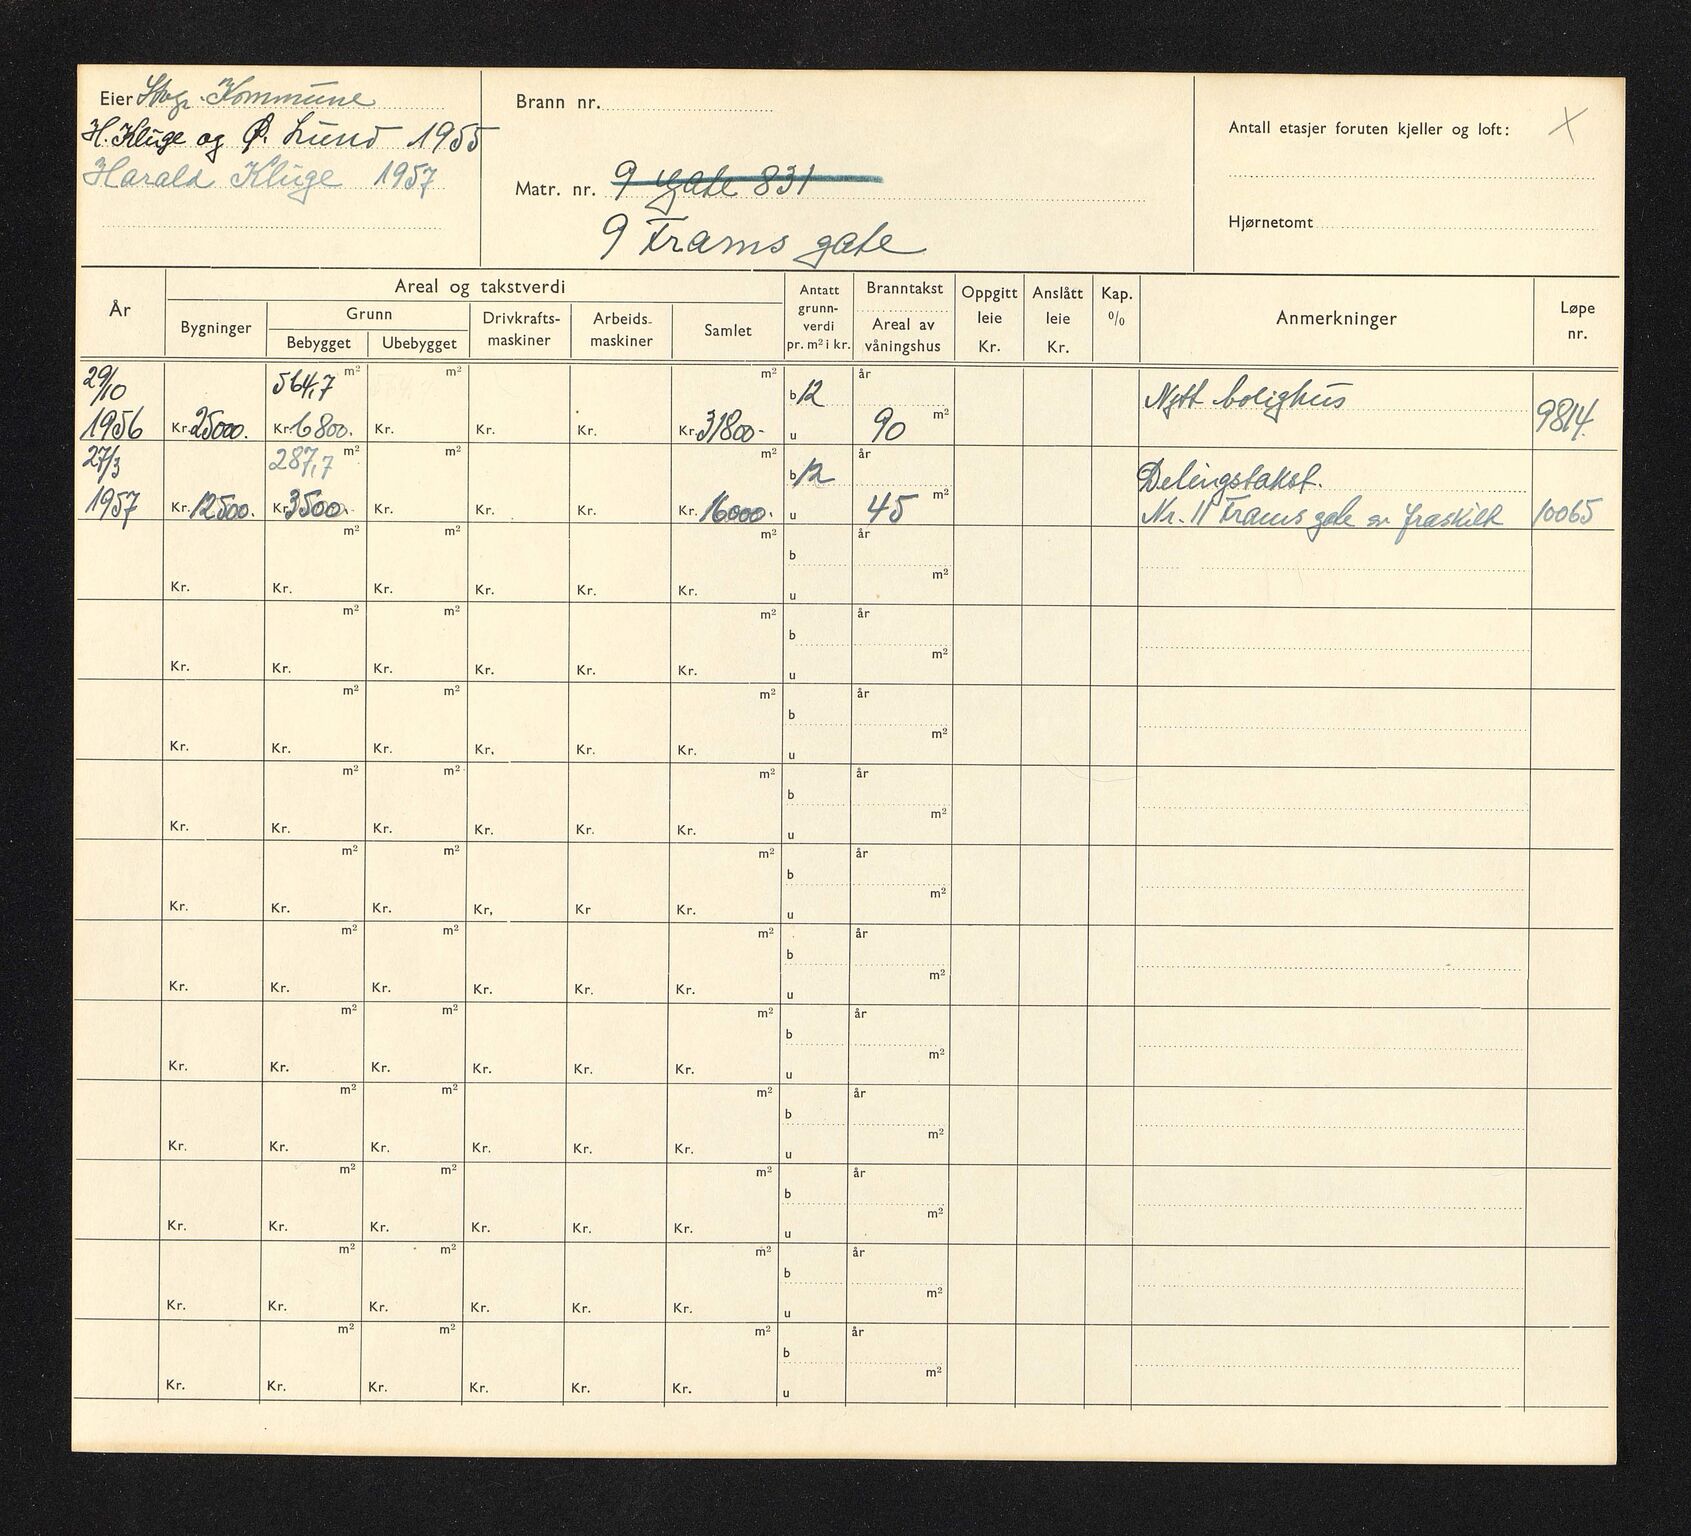 Eier Stvgr. Kommune
H. Kluge og Ø. Lund 1955
Harald Kluge 1957
Brann nr.
Matr. nr. 9 gate 831
9 Frams gate
Antall etasjer foruten kjeller og loft: X
Hjørnetomt
År
Areal og takstverdi
Bygninger
Grunn
Bebygget Ubebygget
Drivkrafts-
maskiner
Arbeids-
maskiner
Samlet
Antatt
grunn-
verdi
pr. m² i kr.
Branntakst
Areal av
våningshus
Oppgitt
leie
Kr.
Anslått
leie
Kr.
Kap.
%
Anmerkninger
Løpe
nr.
29/10 564,7 m² m² m² b 12 år Nytt bolighus
1956 Kr. 25000. Kr. 6800. Kr. Kr. Kr. Kr. 31800- u 90 m² 9814.
27/3 287,7 m² m² m² b 12 år Delingstakst.
1957 Kr. 12500. Kr. 3500. Kr. Kr. Kr. Kr. 16000. u 45 m² Nr. 11 Frams gate er fraskilt 10065
m² m² m² b år
Kr. Kr. Kr. Kr. Kr. Kr. u m²
m² m² m² b år
Kr. Kr. Kr. Kr. Kr. Kr. u m²
m² m² m² b år
Kr. Kr. Kr. Kr. Kr. Kr. u m²
m² m² m² b år
Kr. Kr. Kr. Kr. Kr. Kr. u m²
m² m² m² b år
Kr. Kr. Kr. Kr. Kr Kr. u m²
m² m² m² b år
Kr. Kr. Kr. Kr. Kr. Kr. u m²
m² m² m² b år
Kr. Kr. Kr. Kr. Kr. Kr. u m²
m² m² m² b år
Kr. Kr. Kr. Kr. Kr. Kr. u m²
m² m² m² b år
Kr. Kr. Kr. Kr. Kr. Kr. u m²
m² m² m² b år
Kr. Kr. Kr. Kr. Kr. Kr. u m²
m² m² m² b år
Kr. Kr. Kr. Kr. Kr. Kr. u m²